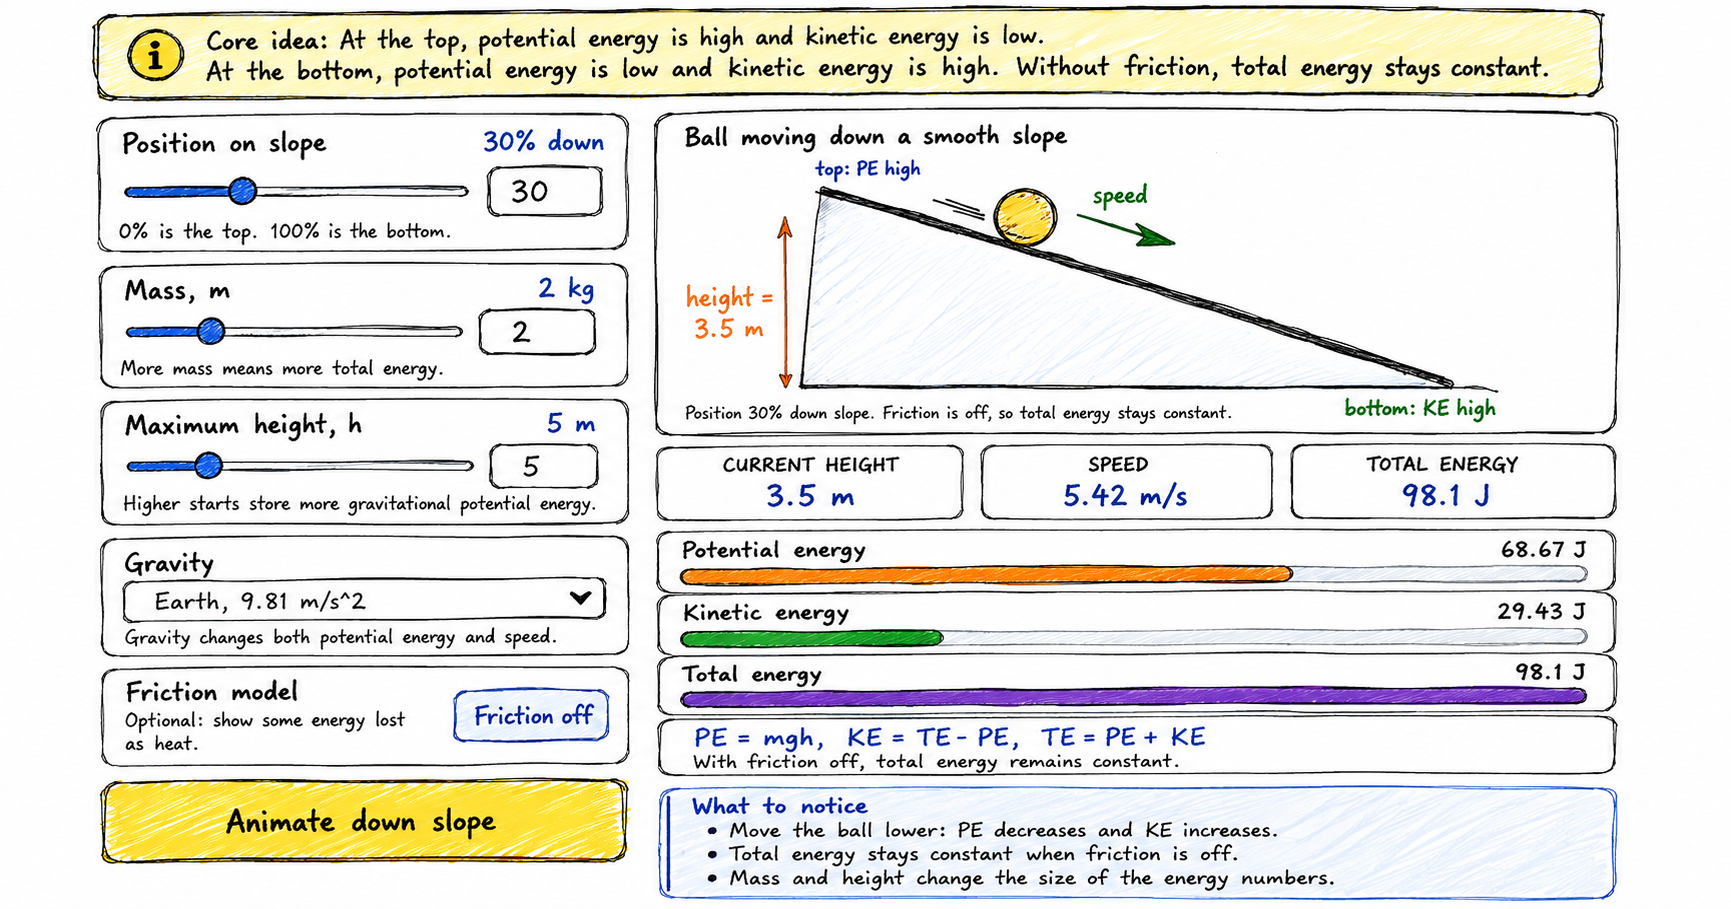 i
Core idea: At the top, potential energy is high and kinetic energy is low.
At the bottom, potential energy is low and kinetic energy is high. Without friction, total energy stays constant.
Position on slope
30% down
30
0% is the top. 100% is the bottom.
Mass, m
2 kg
2
More mass means more total energy.
Maximum height, h
5 m
5
Higher starts store more gravitational potential energy.
Gravity
Earth, 9.81 m/s^2
Gravity changes both potential energy and speed.
Friction model
Optional: show some energy lost
as heat.
Friction off
Animate down slope
Ball moving down a smooth slope
top: PE high
speed
height =
3.5 m
Position 30% down slope. Friction is off, so total energy stays constant.
bottom: KE high
CURRENT HEIGHT
3.5 m
SPEED
5.42 m/s
TOTAL ENERGY
98.1 J
Potential energy
68.67 J
Kinetic energy
29.43 J
Total energy
98.1 J
PE = mgh, KE = TE - PE, TE = PE + KE
With friction off, total energy remains constant.
What to notice
• Move the ball lower: PE decreases and KE increases.
• Total energy stays constant when friction is off.
• Mass and height change the size of the energy numbers.